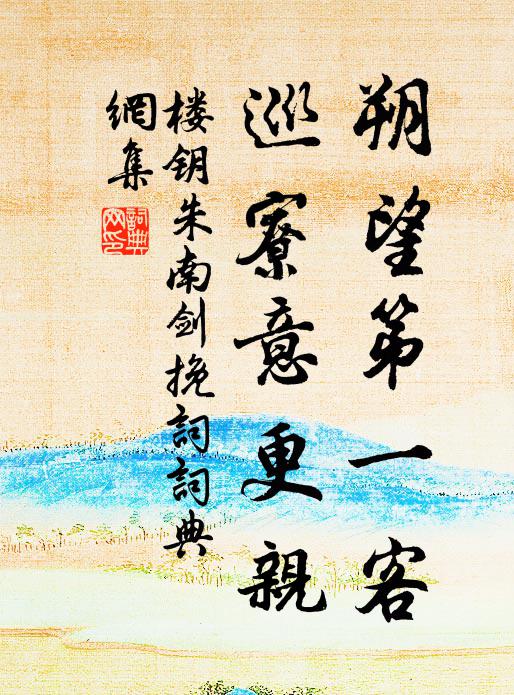 朔望第一客
巡寮意更親
楼钥朱南剑挽詞詞典
網集
詞典
网印